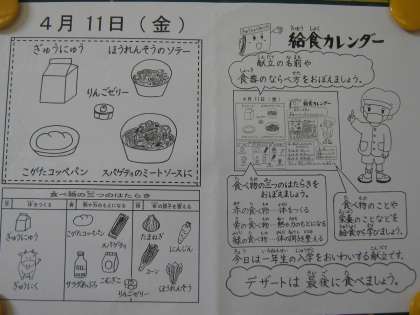 4月 11日（金）
ぎゅうにゅう
ほうれんそうのソテー
りんごゼリー
こがたコッペパン
スパゲティのミートソースに
食べ物の三つのはたらき
ぎゅうにゅう
ぎゅうにく
こがたコッペパン
スパゲティ
サラダあぶら
こむぎこ
りんごゼリー
たまねぎ
にんじん
コーン
ほうれんそう
給食カレンダー
献立の名前や
食器のならべ方をおぼえましょう。
食べ物の三つのはたらきを
おぼえましょう。
赤の食べ物…体をつくる
黄の食べ物…熱や力のもとになる
緑の食べ物…体の調子を整える
食べ物のことや
栄養のことなどを
給食から学びましょう。
今日は一年生の入学をおいわいする献立です。
デザートは 最後に食べましょう。